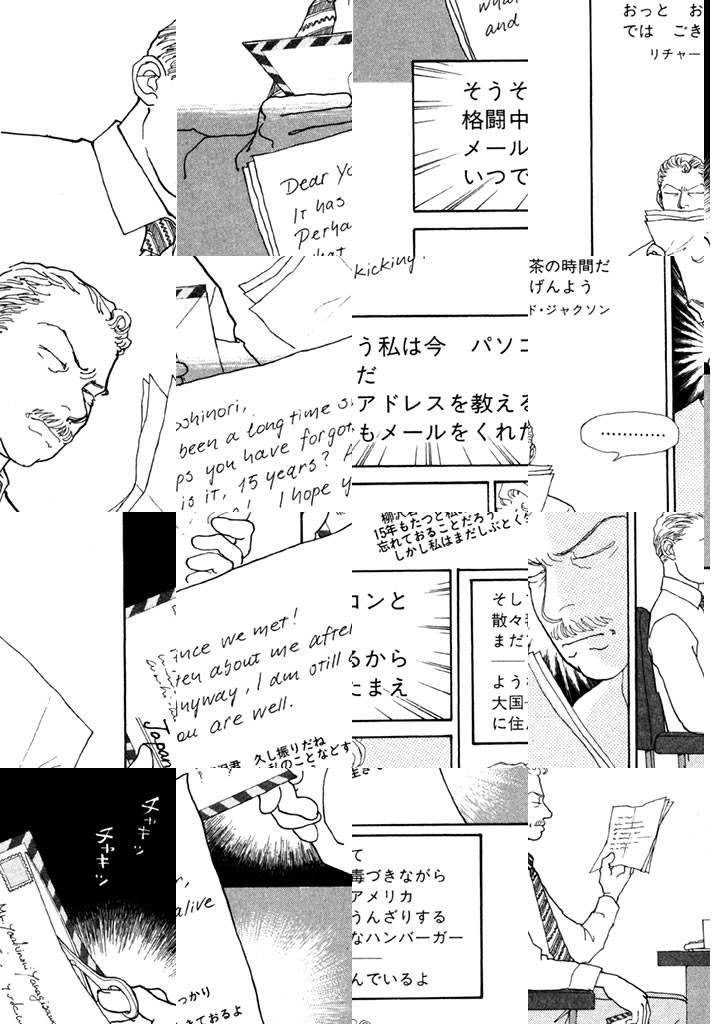 what
and
おっと お
では ごき
リチャー
そうそ
格闘中
メール
いつで
Dear Yo
It has
Perha
what
kicking!
茶の時間だ
げんよう
ド・ジャクソン
う私は今 パソコ
だ
アドレスを教える
もメールをくれた
…………
oshinori,
been a long time s
ps you have forgot
is it, 15 years? A
I hope y
15年もたつと私
忘れておることだろう
しかし私はまだしぶとく
コンと
るから
たまえ
そし
散々
まだ
よう
大国
に住
ince we met!
ten about me after
nyway, I am still
ou are well.
Japan
久し振りだね
のことなどす
チャキッ
チャキッ
r,
alive
て
毒づきながら
アメリカ
うんざりする
なハンバーガー
んでいるよ
Mr. Yoshinori Yanagisawa
っかり
きておるよ